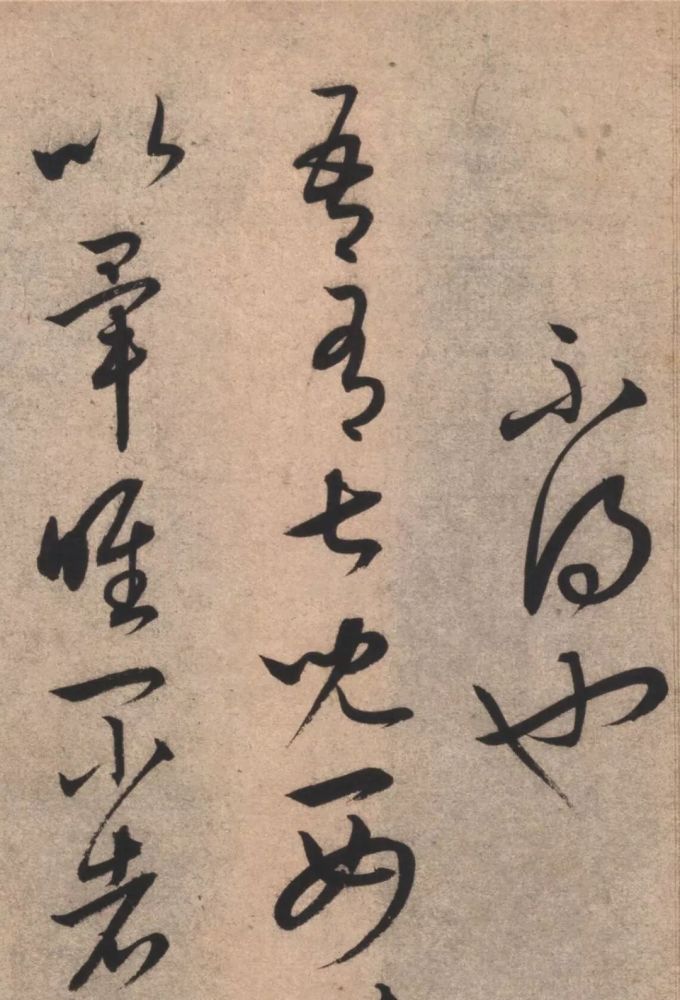 不得也
吾有七兒一女
以畢唯一小者